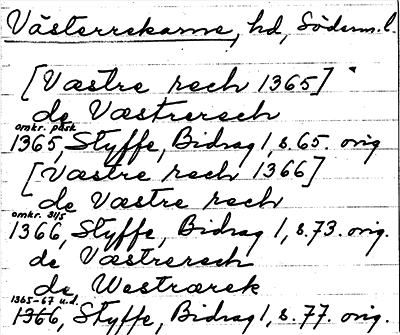 Västerrekarne, hd, Söderm. l.
[Væstre rech 1365]
de Væstrerech
omkr. påsk
1365, Styffe, Bidrag 1, s. 65. orig
[Væstre rech 1366]
de Væstre rech
omkr. 31/5
1366, Styffe, Bidrag 1, s. 73. orig.
de Væstrerech
de Westrærek
1365-67 u.d.
1366, Styffe, Bidrag 1, s. 77. orig.